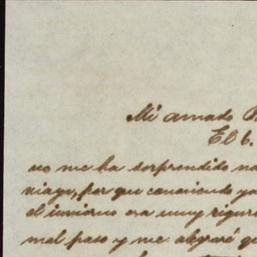 Mi amado
El 6.
no me ha sorprendido
viage, por que conociendo
el invierno era muy
mal paso y me alegraré